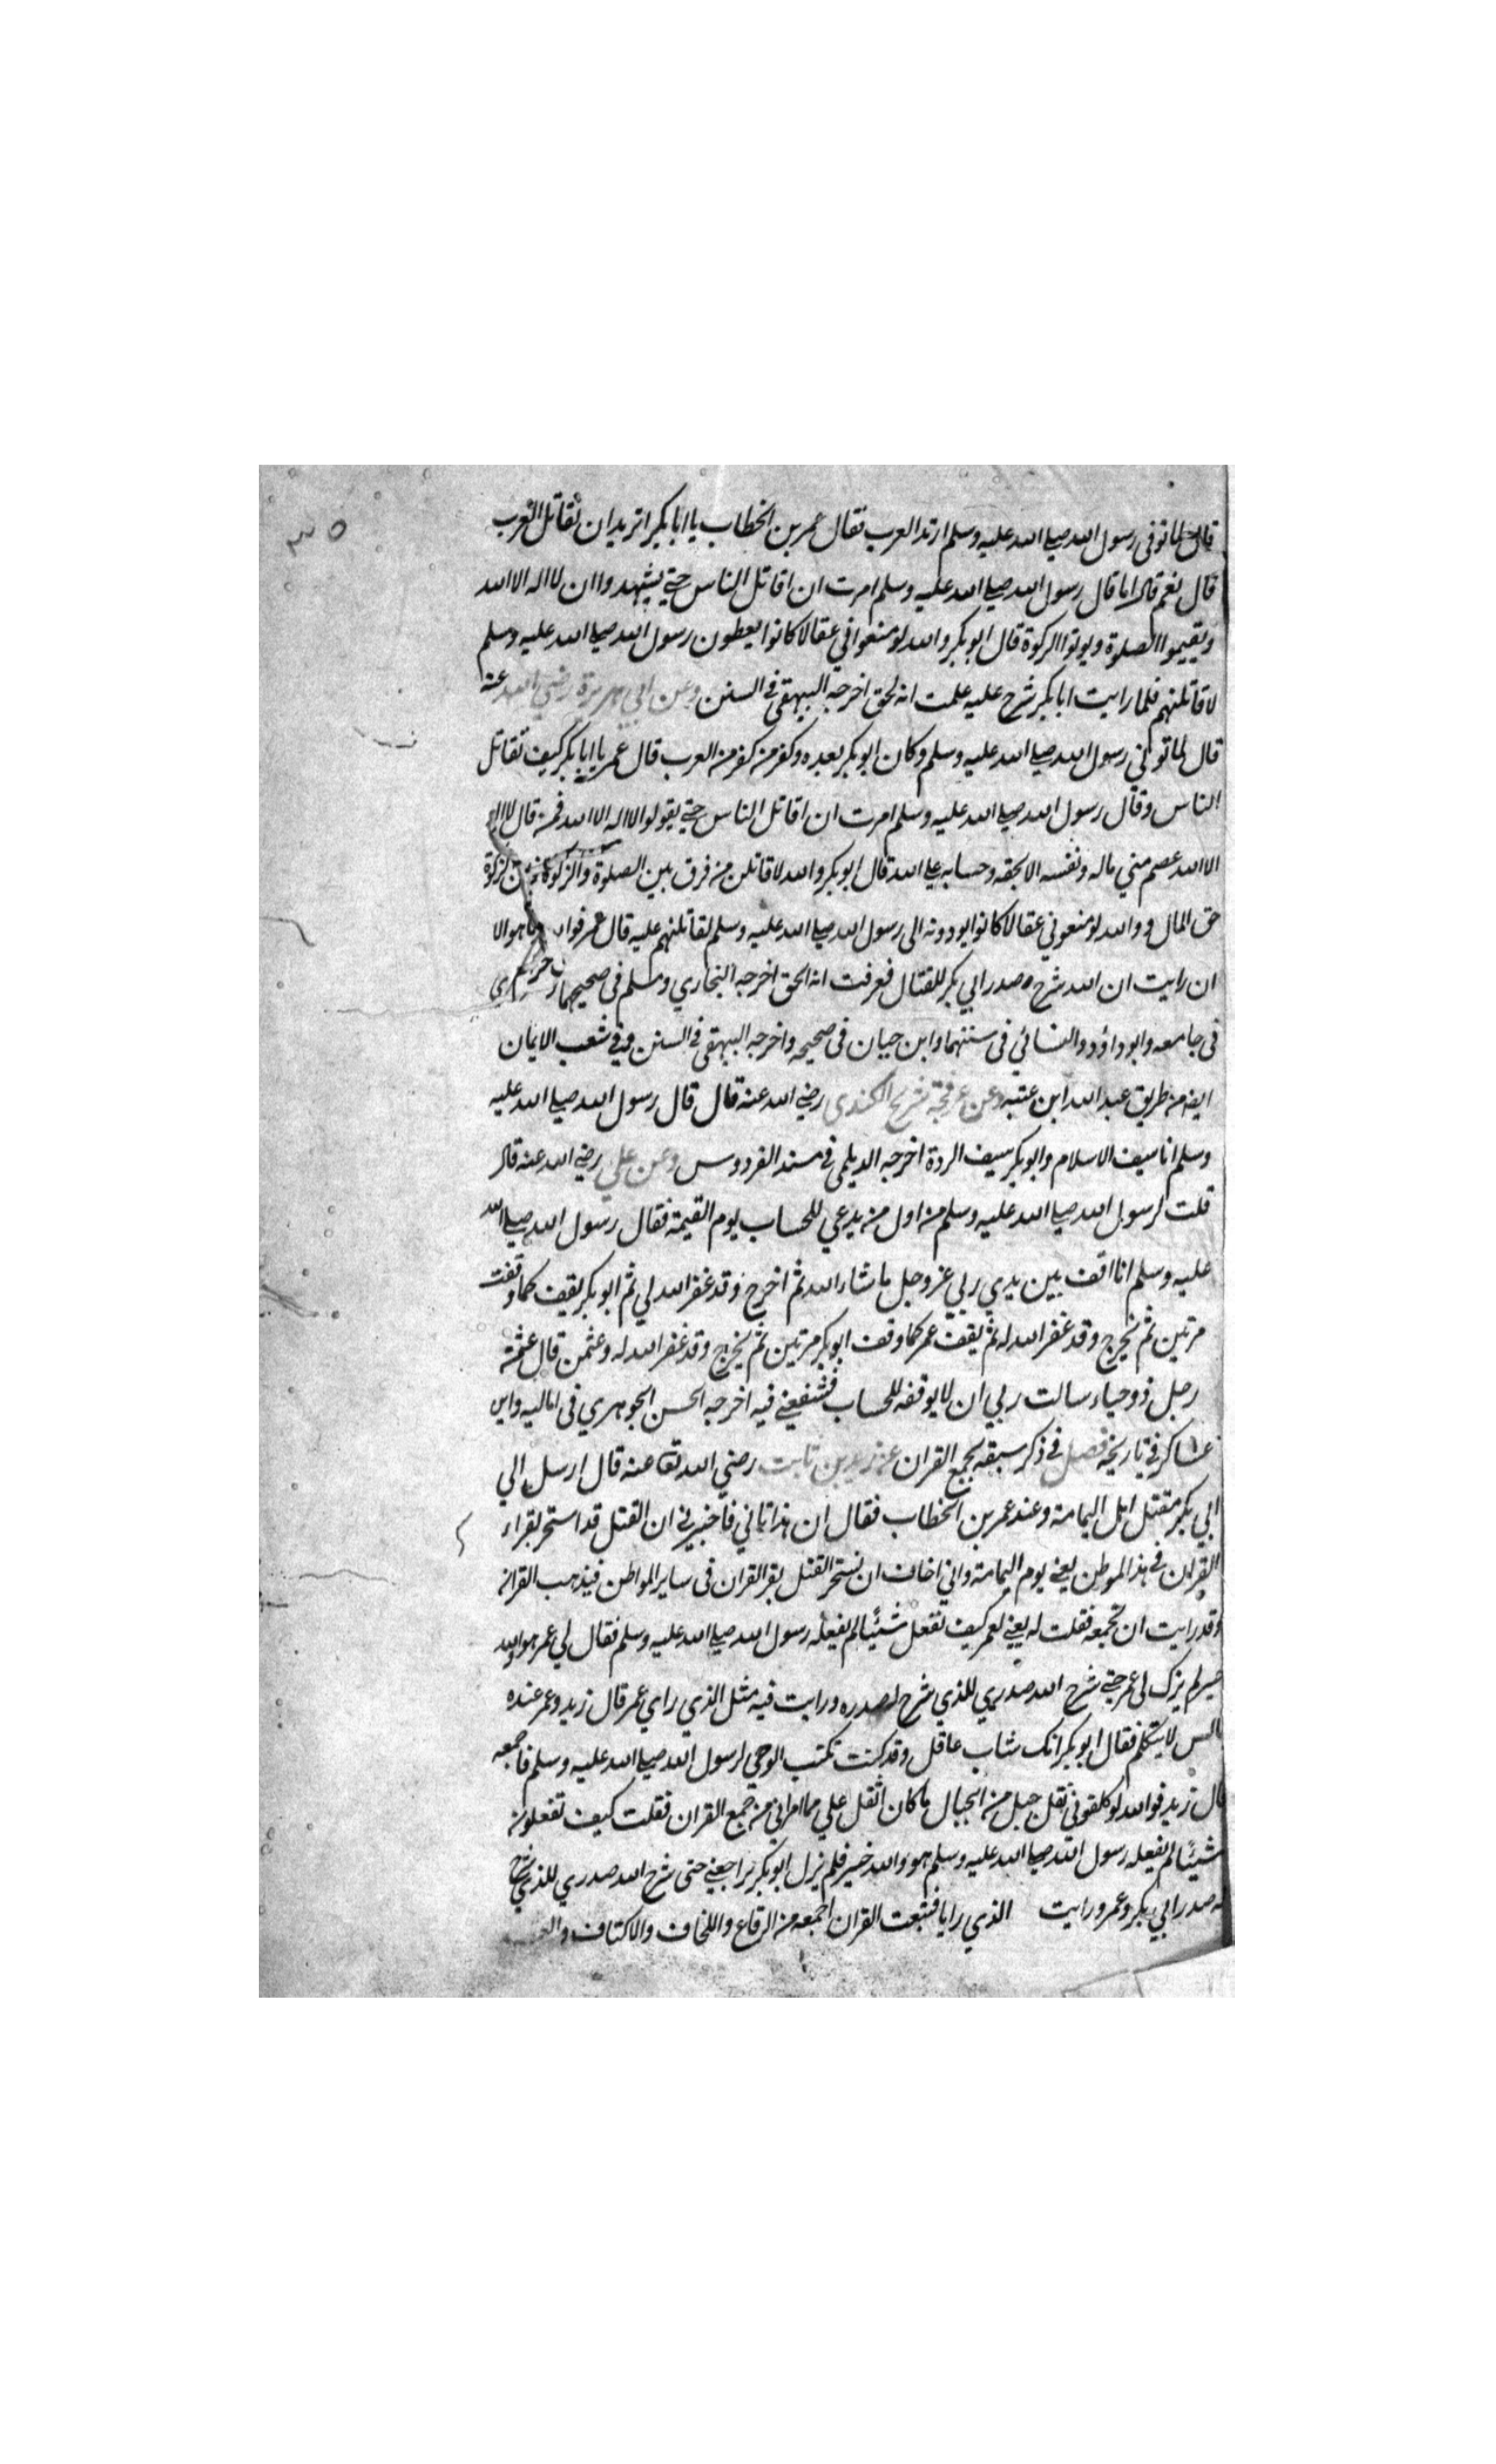 ٣٥
قال لما توفى رسول الله صلى الله عليه وسلم ارتد العرب فقال عمر بن الخطاب يا ابا بكر اتريد ان تقاتل العرب
قال نعم قال اما قال رسول الله صلى الله عليه وسلم امرت ان اقاتل الناس حتى يشهدوا ان لا اله الا الله
ويقيموا الصلوة ويوتوا الزكوة قال ابو بكر والله لو منعوا في عقالا كانوا يعطون رسول الله صلى الله عليه وسلم
لاقاتلنهم فلما رايت ابا بكر شرح عليه علمت انه لحق اخرجه البيهقى في السنن وعن ابي هريرة رضي الله عنه
قال لما توفي رسول الله صلى الله عليه وسلم وكان ابو بكر بعده وكفر من كفر من العرب قال عمر يا ابا بكر كيف تقاتل
الناس وقال رسول الله صلى الله عليه وسلم امرت ان اقاتل الناس حتى يقولوا لا اله الا الله فمن قال لا اله
الا الله عصم مني ماله ونفسه الا بحقه وحسابه على الله قال ابو بكر والله لا قاتلن من فرق بين الصلوة والزكوة فان الزكوة
حق المال و والله لو منعوني عقالا كانوا يودونه الى رسول الله صلى الله عليه وسلم لقاتلنهم عليه قال عمر فوا ما هو الا
ان رايت ان الله شرح صدر ابي بكر للقتال فعرفت انه الحق اخرجه البخاري ومسلم فى صحيحهما
فى جامعه وابو داؤد والنسائي فى سننهما وابن حبان فى صحيحه واخرجه البيهقى في السنن وفي شعب الايمان
ايضه من طريق عبد الله ابن عتبه وعن عرفجة شريح الكندى رضي الله عنه قال قال رسول الله صلى الله عليه
وسلم انا سيف الاسلام وابو بكر سيف الردة اخرجه الديلمى في مسند الفردوس وعن علي رضي الله عنه قال
قلت لرسول الله صلى الله عليه وسلم من اول من يدعي للحساب يوم القيمة فقال رسول الله صلى الله
عليه وسلم انا اقف بين يدي ربي عز وجل ما شاء الله ثم اخرج وقد غفر الله لي ثم ابو بكر يقف كما وقفت
مرتين ثم يخرج وقد غفر الله له ثم يقف عمر كما وقف ابو بكر مرتين ثم يخرج وقد غفر الله له وعثمن قال عثمن
رجل ذو حياء سالت ربي ان لا يوقفه للحساب فشفعني فيه اخرجه الحسن الجوهري فى اماليه وابن
عساكر في تاريخه فصل في ذكر سبقه بجمع القران عن زيد بن ثابت رضي الله تعا عنه قال ارسل الي
ابي بكر مقتل اهل اليمامة وعند عمر بن الخطاب فقال ان هذا تاني فاخبرني ان القتل قد استحر بقراء
القران في هذ الموطن يعني يوم اليمامة واني اخاف ان يستحر القتل بقر القران فى ساير المواطن فيذهب القران
وقد رايت ان تجمعه فقلت له يعني لعمر كيف تفعل شئيا لم يفعله رسول الله صلى الله عليه وسلم فقال لي عمر هو والله
خير لم يزل لى عمر حتى شرح الله صدري للذي شرح له صدره ورايت فيه مثل الذي راي عمر قال زيد وعمر عنده
جالس لا يتكلم فقال ابو بكر انك شاب عاقل وقد كنت تكتب الوحي لرسول الله صلى الله عليه وسلم فاجمعه
قال زيد فوالله لو كلفوني نقل جبل من الجبال ما كان اثقل علي مما امراني من جمع القران فقلت كيف تفعلون
شئيا لم يفعله رسول الله صلى الله عليه وسلم هو والله خير فلم يزل ابو بكر يراجعني حتى شرح الله صدري للذي شرح
له صدر ابي بكر وعمر ورايت الذي رايا فتبعت القران اجمعه من الرقاع واللخاف والاكتاف